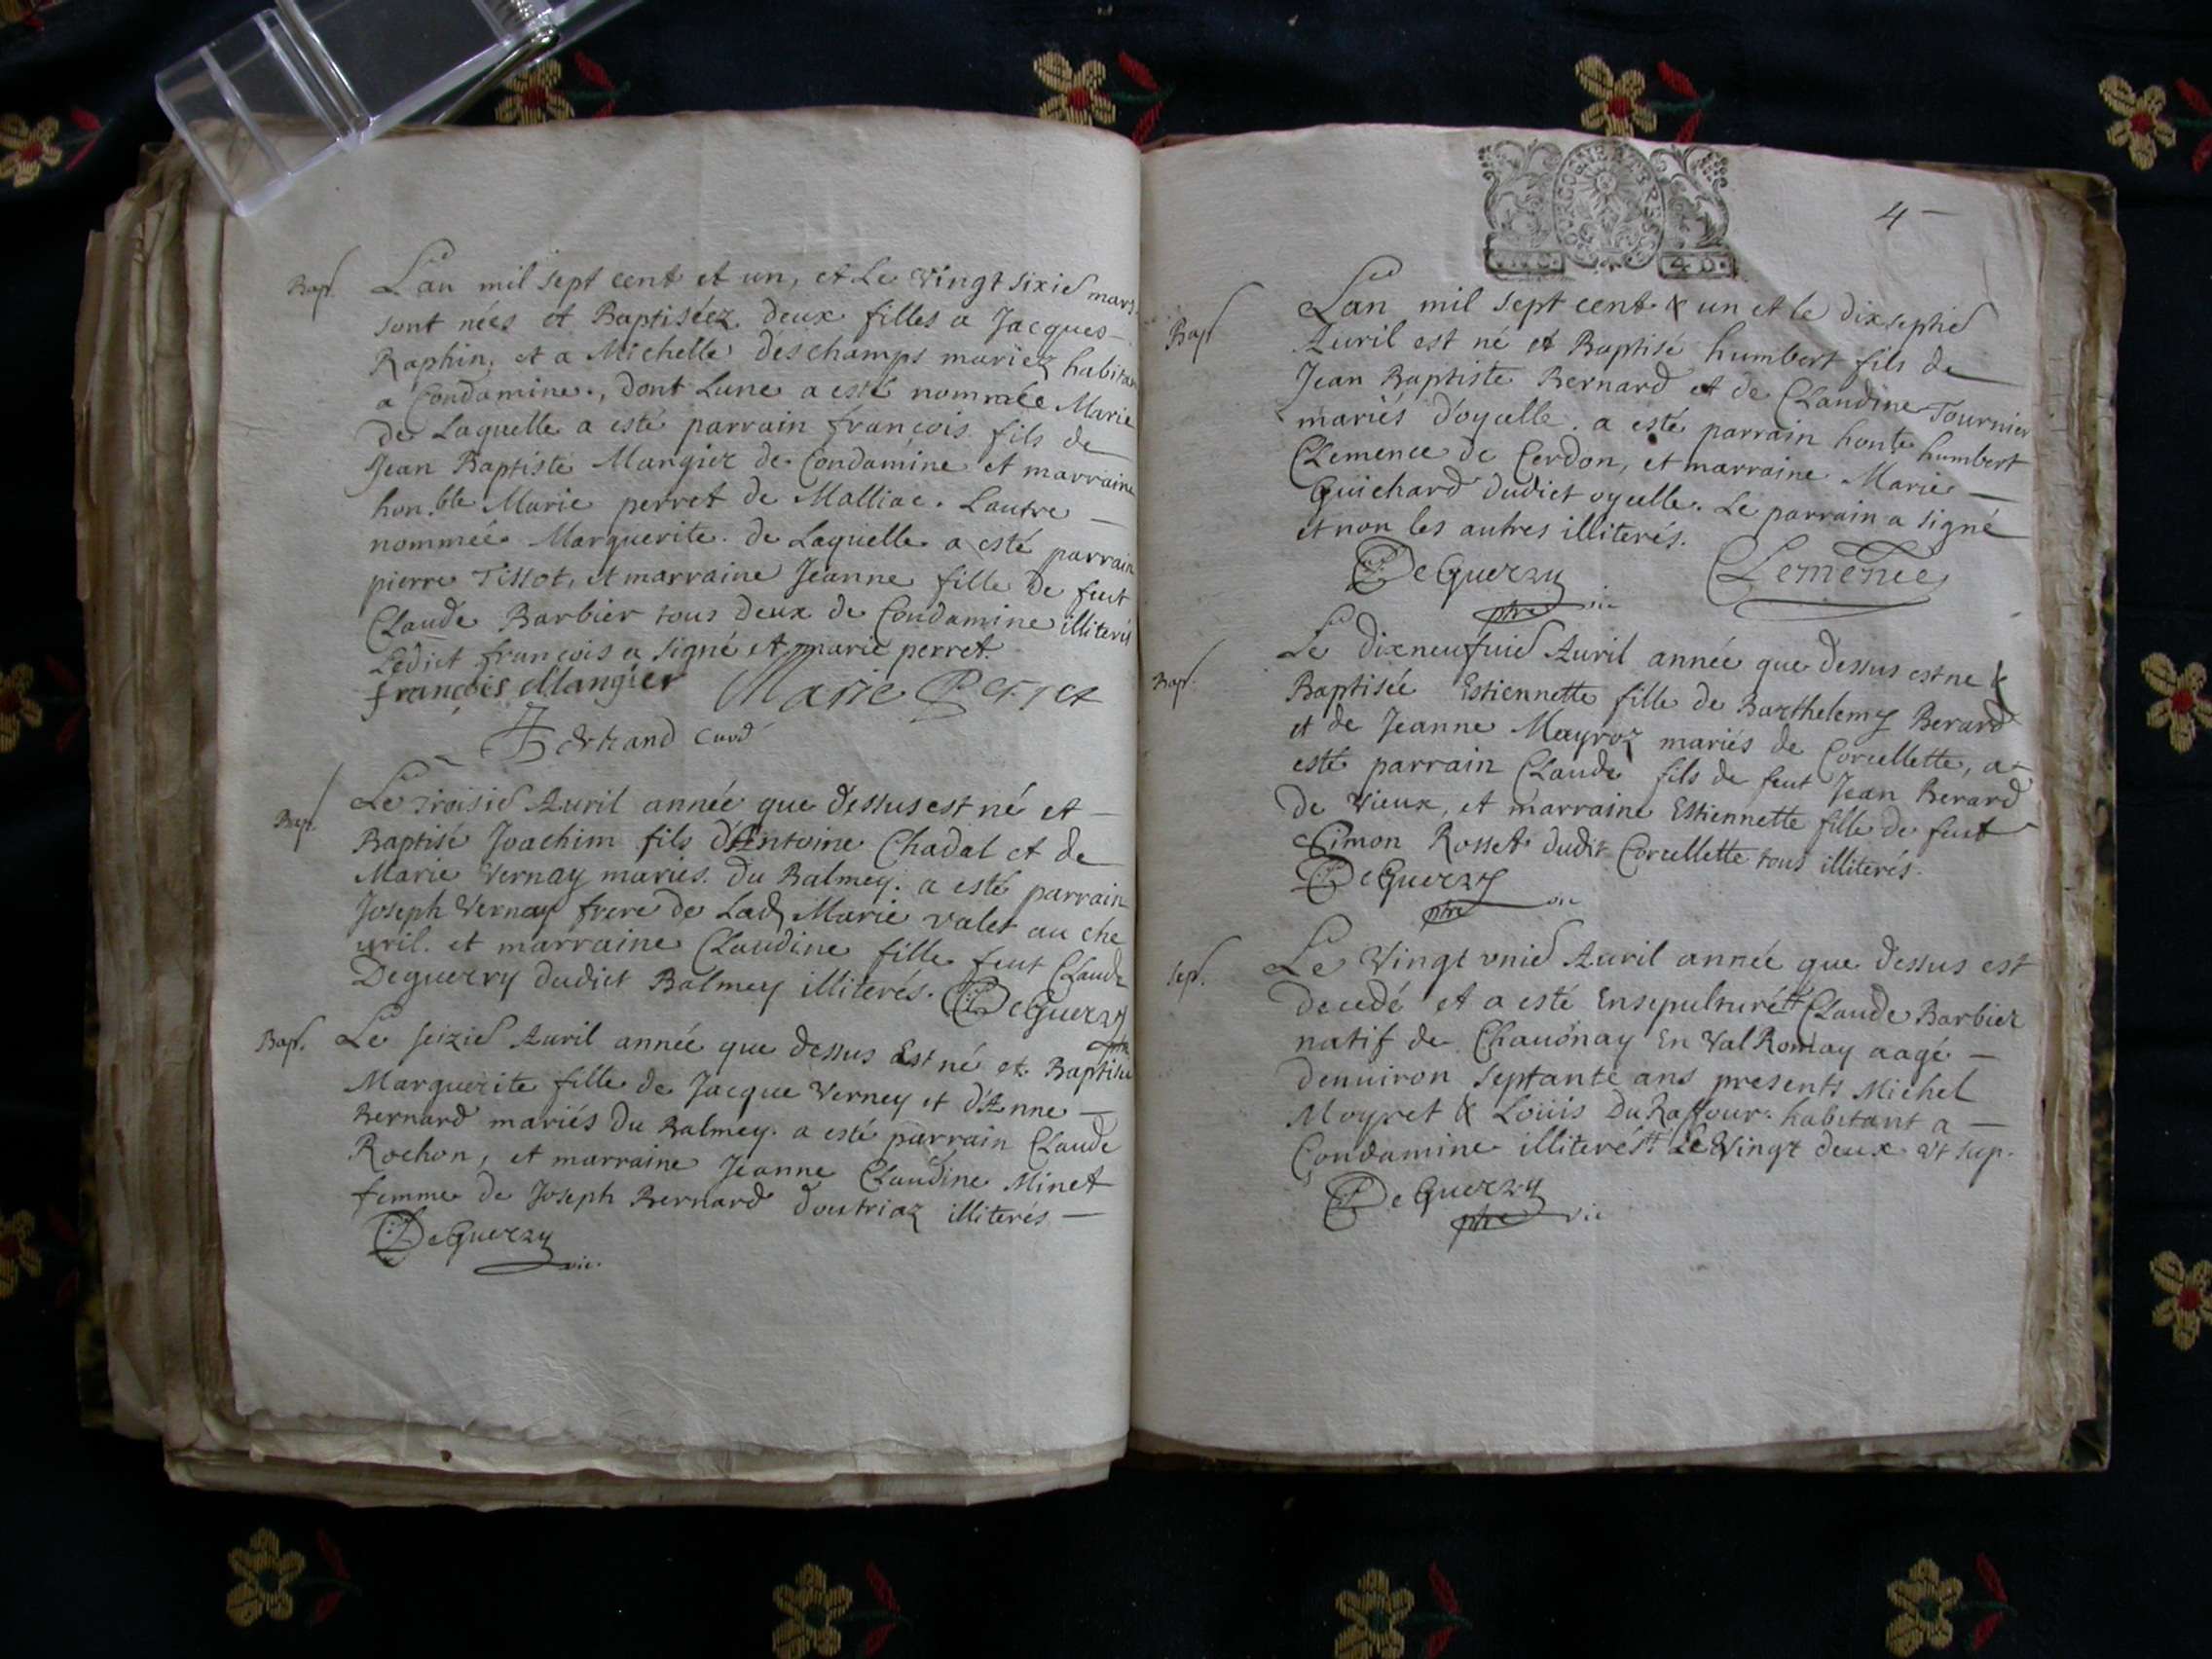 Bap.
Lan mil sept cent et un, et Le vingt sixie mars
sont nées et Baptiséez deux filles a Jacques
Raphin, et a Michelle deschamps mariez habitan
a Condamine, dont Lune a esté nommée Marie
de Laquelle a esté parrain françois fils de
Jean Baptiste Mangier de Condamine et marraine
hon.ble Marie perret de Malliac. Lautre
nommée Marguerite. de Laquelle a esté parrain
pierre Tissot, et marraine Jeanne fille de feut
Claude Barbier tous deux de Condamine illiterés
Ledict françois a signé et marie perret.
françois Mangier Marie Perret
Bertrand curé
Bap.
Le Troisie Auril année que dessus est né et
Baptisé Joachim fils d'Antoine Chadal et de
Marie Vernay mariés du Balmey. a esté parrain
Joseph Vernay frere de Lad. Marie valet au che
uril. et marraine Claudine fille feut Claude
Deguerry dudict Balmey illiterés. DeGuerry
ptre
Bap.
Le seizie Auril année que dessus Est né et Baptisée
Marguerite fille de Jacque Verney et d'Anne
Bernard mariés du Balmey. a esté parrain Claude
Rochon, et marraine Jeanne Claudine Minet
femme de Joseph Bernard doutriaz illiterés
DeGuerry
vic.
4
Bap
Lan mil sept cent & un et le dixseptie
Auril est né et Baptisé humbert fils de
Jean Baptiste Bernard et de Claudine Tournier
mariés d'oyselle. a esté parrain hon.te humbert
Clemence de Cerdon, et marraine Marie
Guichard dudict oyselle. Le parrain a signé
et non les autres illiterés.
DeGuerry Clemence
ptre vic
Bap.
Le dixneufuie Auril année que dessus est ne &
Baptisée Estiennette fille de Barthelemy Berard
et de Jeanne Mayroz mariés de Corcellette, a
esté parrain Claude fils de feut Jean Berard
de Vieux, et marraine Estiennette fille de feut
Simon Rosset dudit Corcellette tous illiterés.
DeGuerry
ptre vic
Sep.
Le Vingt unie Auril année que dessus est
decedé et a esté Ensepulturé Claude Barbier
natif de Chauonay En Val Romay aagé
denuiron septante ans presents Michel
Moyret & Loüis DuRaffour habitant a
Condamine illiterés Le Vingt deux Vt sup.
DeGuerry
ptre vic